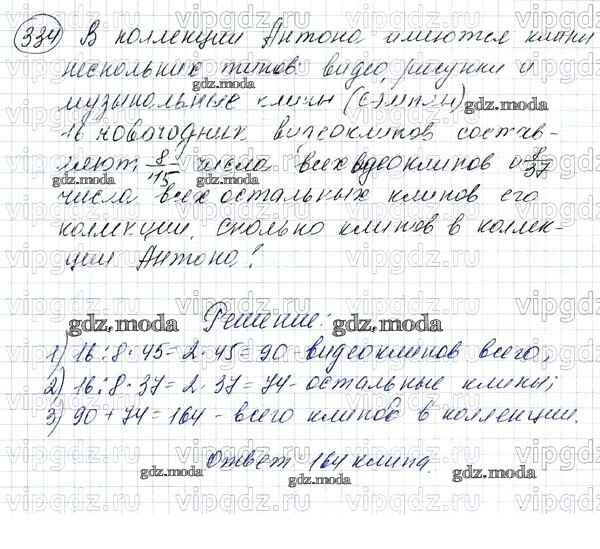 334 В коллекции Антона имеются клипы
нескольких типов видео, рисунки и
музыкальные клипы (сэмплы)
16 новогодних видеоклипов состав-
ляют 8/45 числа всех видеоклипов и 8/37
числа всех остальных клипов его
коллекции. Сколько клипов в коллек-
ции Антона?
Решение:
1) 16:8·45=2·45=90-видеоклипов всего;
2) 16:8·37=2·37=74-остальные клипы;
3) 90+74=164-всего клипов в коллекции.
Ответ 164 клипа.
gdz.moda
vipgdz.ru